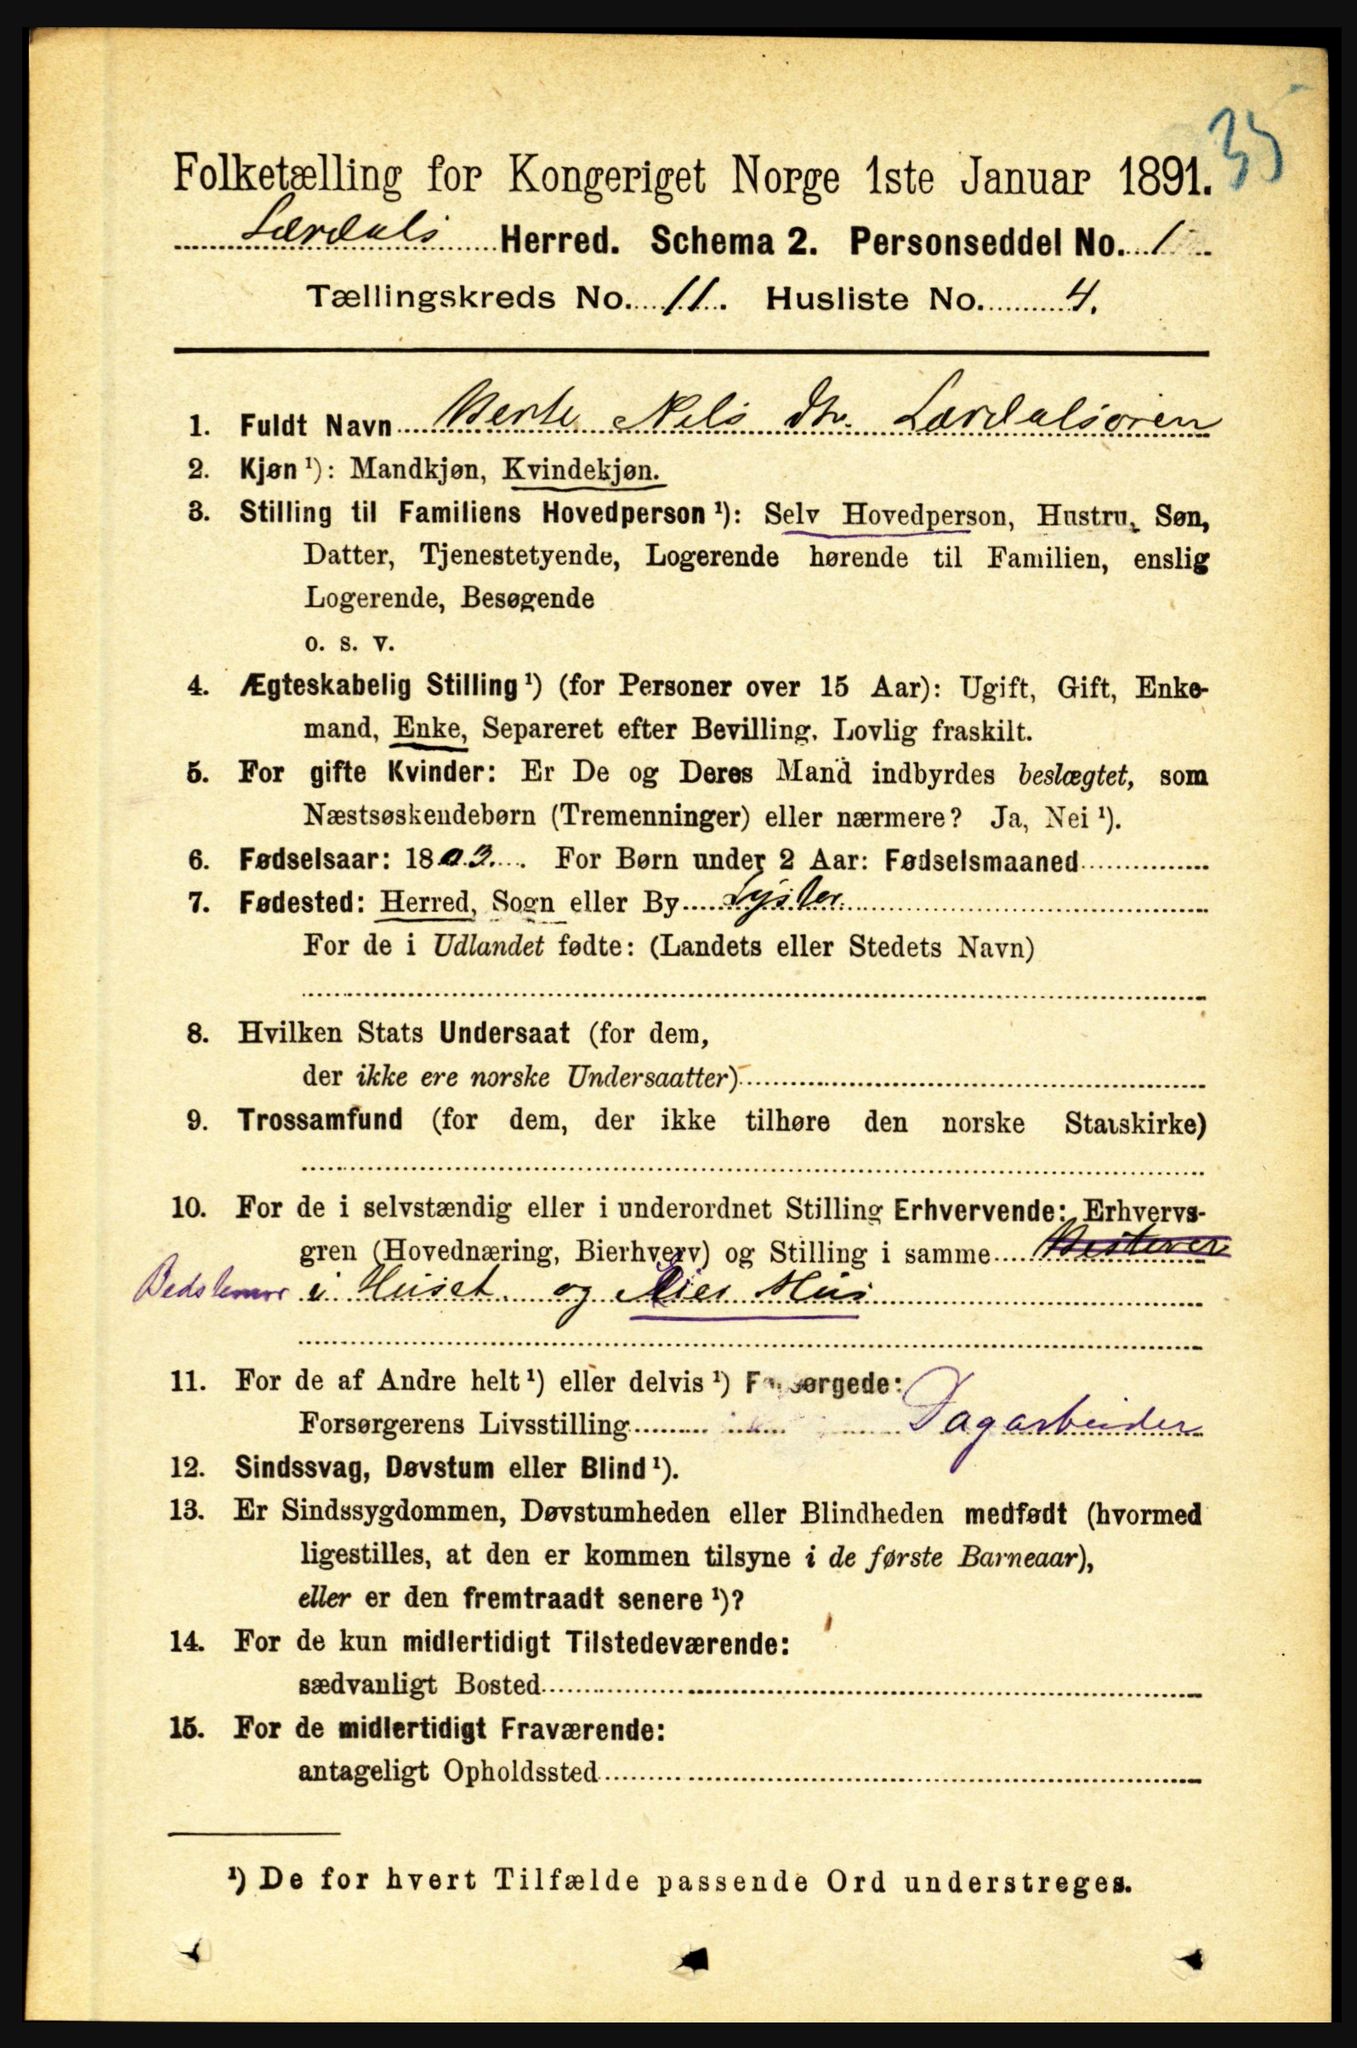 35
Folketælling for Kongeriget Norge 1ste Januar 1891.
Lærdals Herred. Schema 2. Personseddel No. 1
Tællingskreds No. 11. Husliste No. 4.
1. Fuldt Navn Berte Nels Dtr. Lærdalsøren
2. Kjøn ¹): Mandkjøn, Kvindekjøn.
3. Stilling til Familiens Hovedperson ¹): Selv Hovedperson, Hustru, Søn,
Datter, Tjenestetyende, Logerende hørende til Familien, enslig
Logerende, Besøgende
o. s. v.
4. Ægteskabelig Stilling ¹) (for Personer over 15 Aar): Ugift, Gift, Enke-
mand, Enke, Separeret efter Bevilling, Lovlig fraskilt.
5. For gifte Kvinder: Er De og Deres Mand indbyrdes beslægtet, som
Næstsøskendebørn (Tremenninger) eller nærmere? Ja, Nei ¹).
6. Fødselsaar: 1803. For Børn under 2 Aar: Fødselsmaaned
7. Fødested: Herred, Sogn eller By Lyster
For de i Udlandet fødte: (Landets eller Stedets Navn)
8. Hvilken Stats Undersaat (for dem,
der ikke ere norske Undersaatter)
9. Trossamfund (for dem, der ikke tilhøre den norske Statskirke)
10. For de i selvstændig eller i underordnet Stilling Erhvervende: Erhvervs-
gren (Hovednæring, Bierhverv) og Stilling i samme
Bedstemor i Huset og Eier Hus
11. For de af Andre helt ¹) eller delvis ¹) Forsørgede:
Forsørgerens Livsstilling Dagarbeider
12. Sindssvag, Døvstum eller Blind ¹).
13. Er Sindssygdommen, Døvstumheden eller Blindheden medfødt (hvormed
ligestilles, at den er kommen tilsyne i de første Barneaar),
eller er den fremtraadt senere ¹)?
14. For de kun midlertidigt Tilstedeværende:
sædvanligt Bosted
15. For de midlertidigt Fraværende:
antageligt Opholdssted
¹) De for hvert Tilfælde passende Ord understreges.